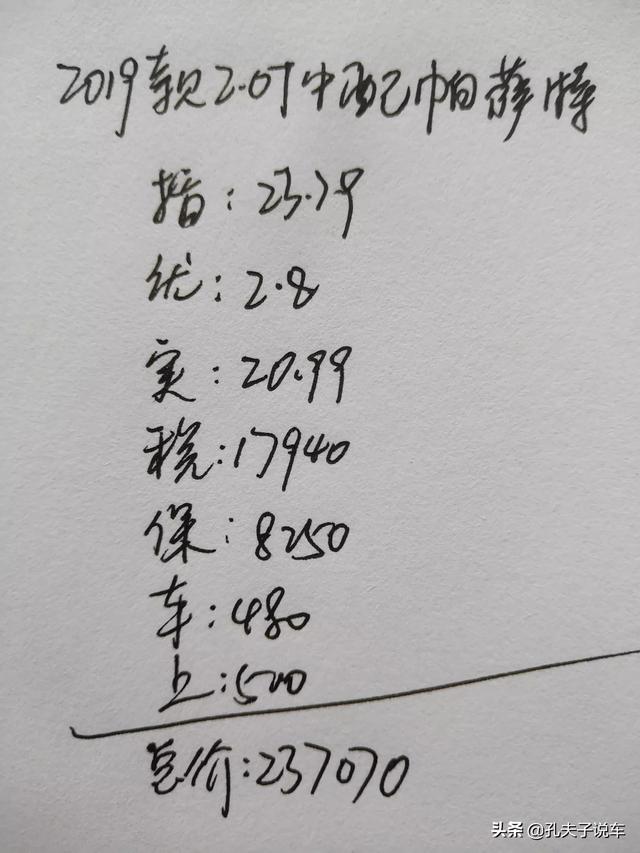 2019款2.0T中配帕萨特
指:23.79
优:2.8
实:20.99
税:17940
保:8250
车:480
上:500
总价:237070
头条 @孔夫子说车